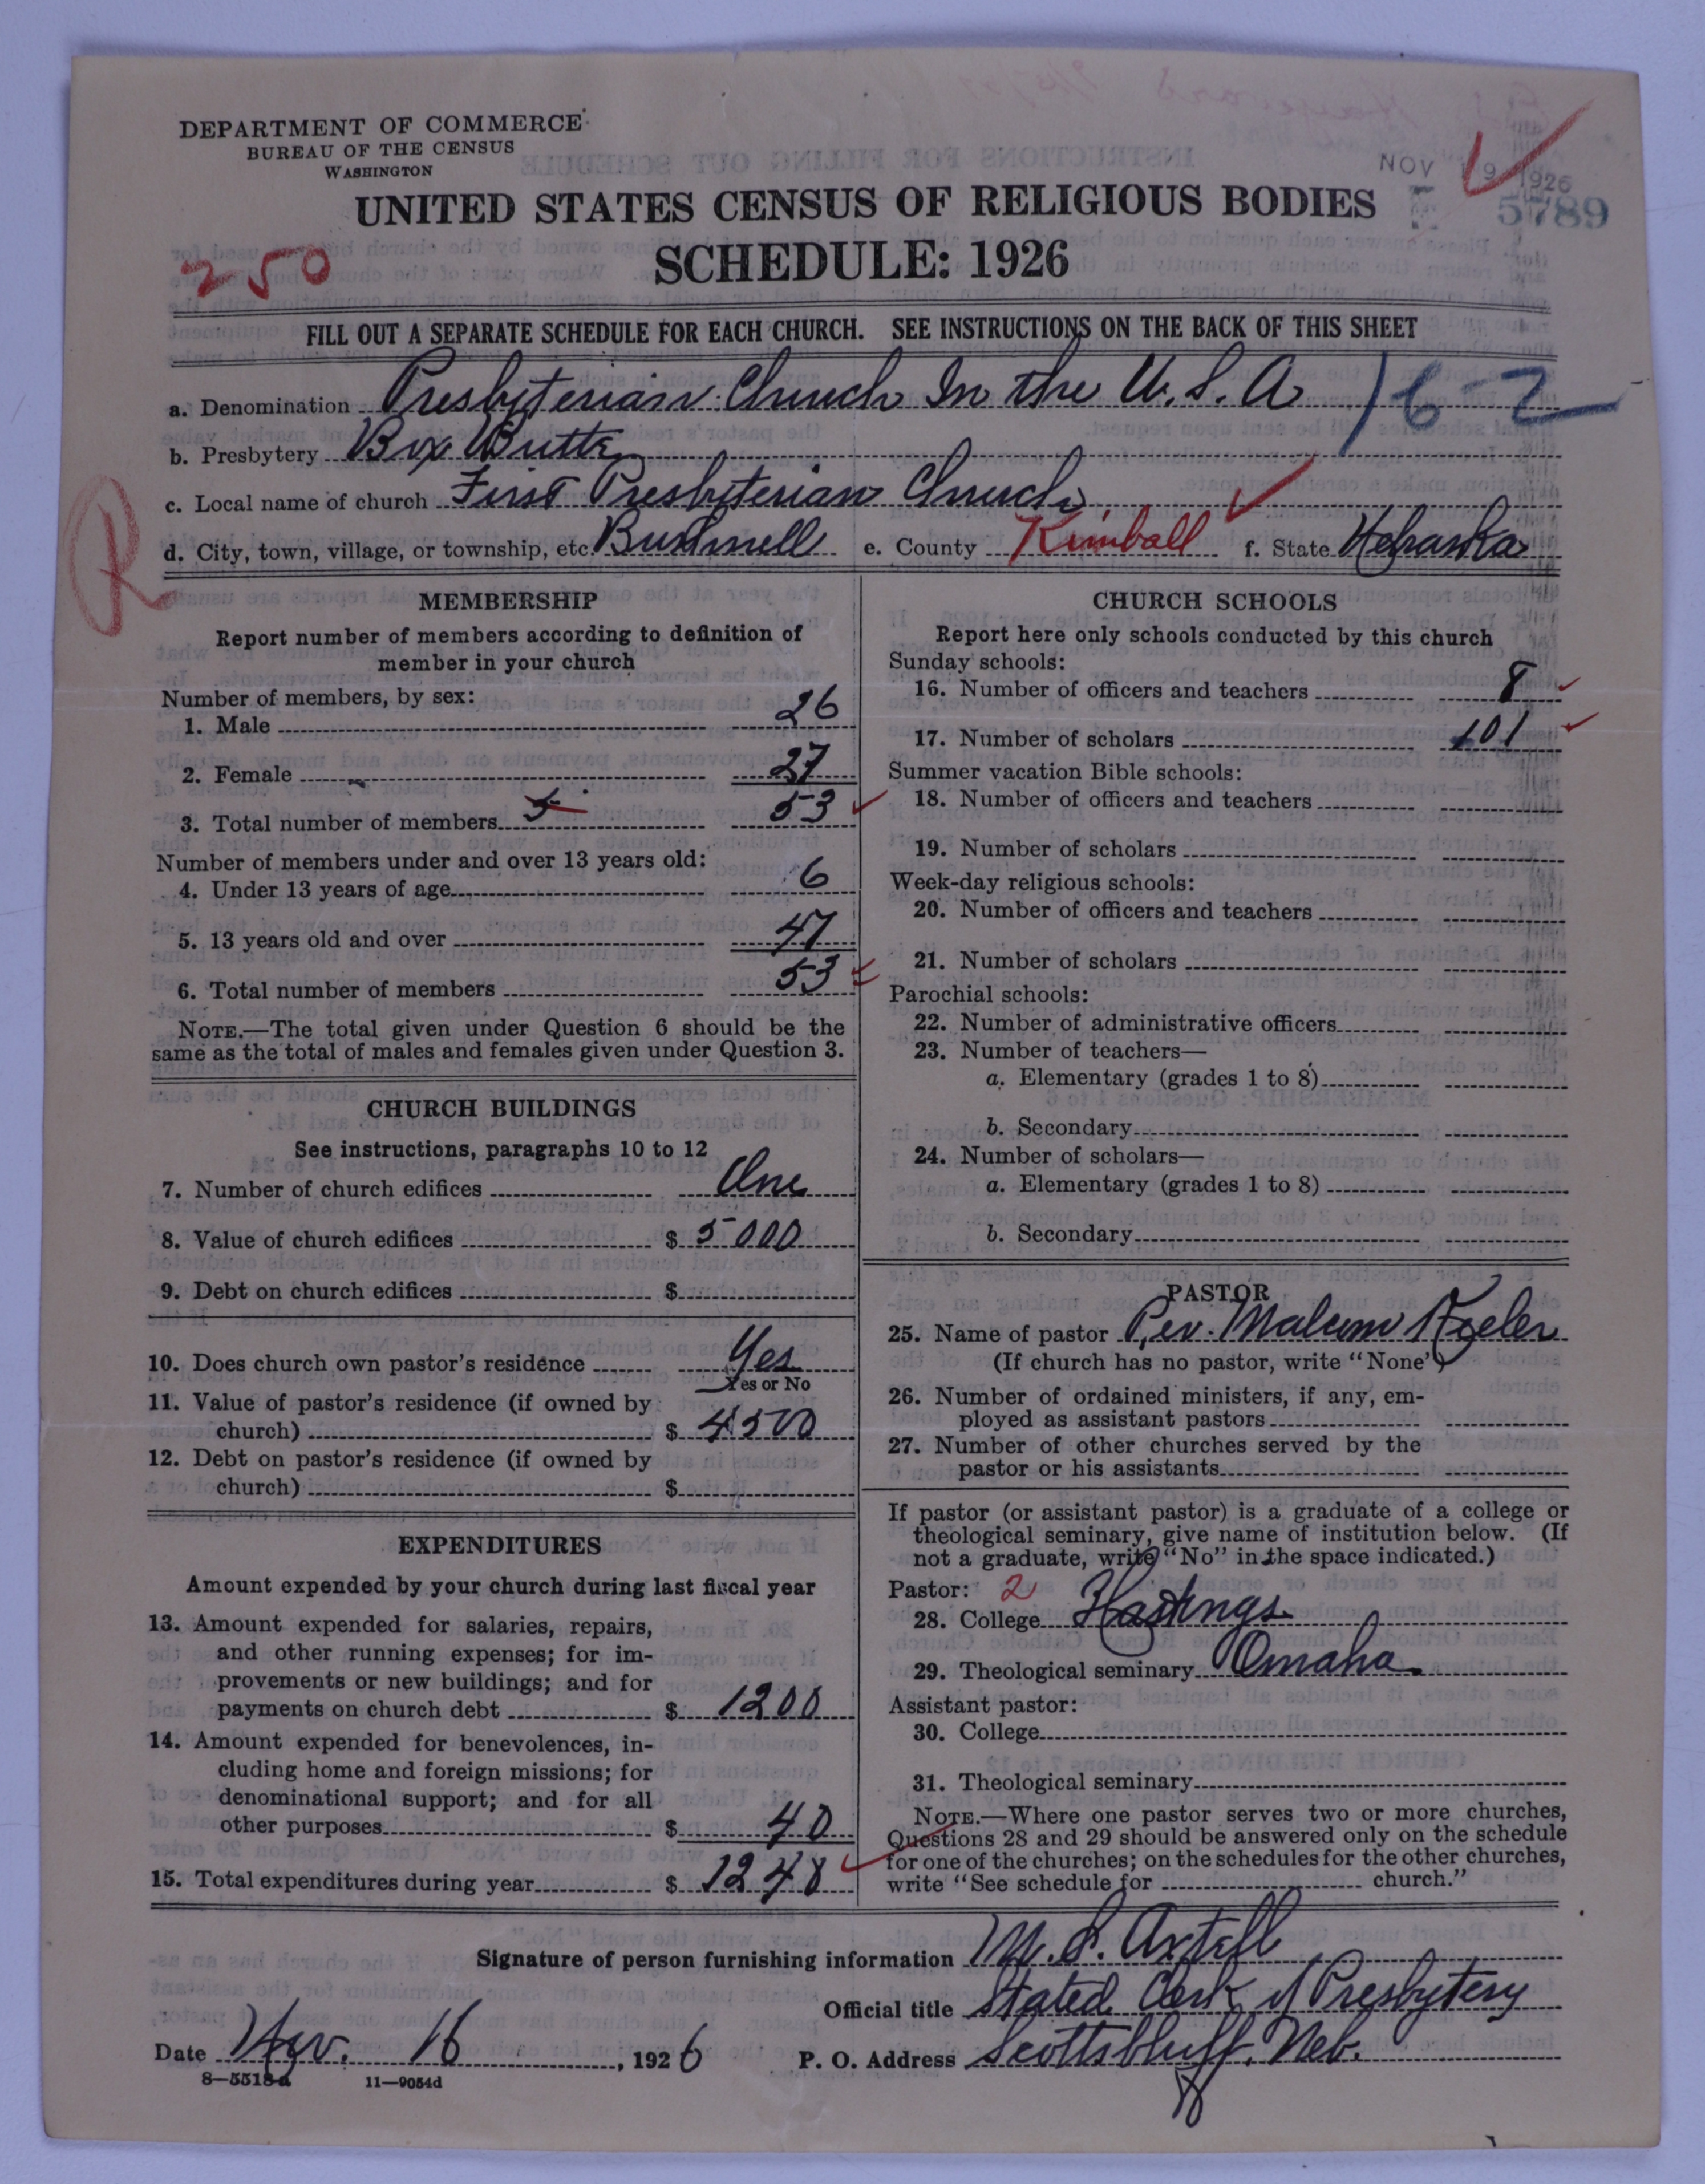 DEPARTMENT OF COMMERCE
BUREAU OF THE CENSUS
WASHINGTON
NOV 19 1926
5789
UNITED STATES CENSUS OF RELIGIOUS BODIES
SCHEDULE: 1926
250
FILL OUT A SEPARATE SCHEDULE FOR EACH CHURCH. SEE INSTRUCTIONS ON THE BACK OF THIS SHEET
a. Denomination Presbyterian Church In the U.S.A 16-2
b. Presbytery Box Butte
c. Local name of church First Presbyterian Church
d. City, town, village, or township, etc. Bushnell e. County Kimball f. State Nebraska
R
MEMBERSHIP
Report number of members according to definition of
member in your church
Number of members, by sex:
1. Male 26
2. Female 27
3. Total number of members 5 53
Number of members under and over 13 years old:
4. Under 13 years of age 6
5. 13 years old and over 47
6. Total number of members 53
NOTE.—The total given under Question 6 should be the
same as the total of males and females given under Question 3.
CHURCH BUILDINGS
See instructions, paragraphs 10 to 12
7. Number of church edifices One
8. Value of church edifices $ 5000
9. Debt on church edifices $
10. Does church own pastor's residence Yes
Yes or No
11. Value of pastor's residence (if owned by
church) $ 4500
12. Debt on pastor's residence (if owned by
church) $
EXPENDITURES
Amount expended by your church during last fiscal year
13. Amount expended for salaries, repairs,
and other running expenses; for im-
provements or new buildings; and for
payments on church debt $ 1200
14. Amount expended for benevolences, in-
cluding home and foreign missions; for
denominational support; and for all
other purposes $ 40
15. Total expenditures during year $ 1248
CHURCH SCHOOLS
Report here only schools conducted by this church
Sunday schools:
16. Number of officers and teachers 8
17. Number of scholars 101
Summer vacation Bible schools:
18. Number of officers and teachers
19. Number of scholars
Week-day religious schools:
20. Number of officers and teachers
21. Number of scholars
Parochial schools:
22. Number of administrative officers
23. Number of teachers—
a. Elementary (grades 1 to 8)
b. Secondary
24. Number of scholars—
a. Elementary (grades 1 to 8)
b. Secondary
PASTOR
25. Name of pastor Rev. Malcum
(If church has no pastor, write "None")
26. Number of ordained ministers, if any, em-
ployed as assistant pastors
27. Number of other churches served by the
pastor or his assistants
If pastor (or assistant pastor) is a graduate of a college or
theological seminary, give name of institution below. (If
not a graduate, write "No" in the space indicated.)
Pastor: 2
28. College Hastings
29. Theological seminary Omaha
Assistant pastor:
30. College
31. Theological seminary
NOTE.—Where one pastor serves two or more churches,
Questions 28 and 29 should be answered only on the schedule
for one of the churches; on the schedules for the other churches,
write "See schedule for church."
Signature of person furnishing information M. S. Axtell
Official title Stated Clerk of Presbytery
Date Nov. 16, 1926 P. O. Address Scottsbluff, Neb.
8—5518a 11—9054d